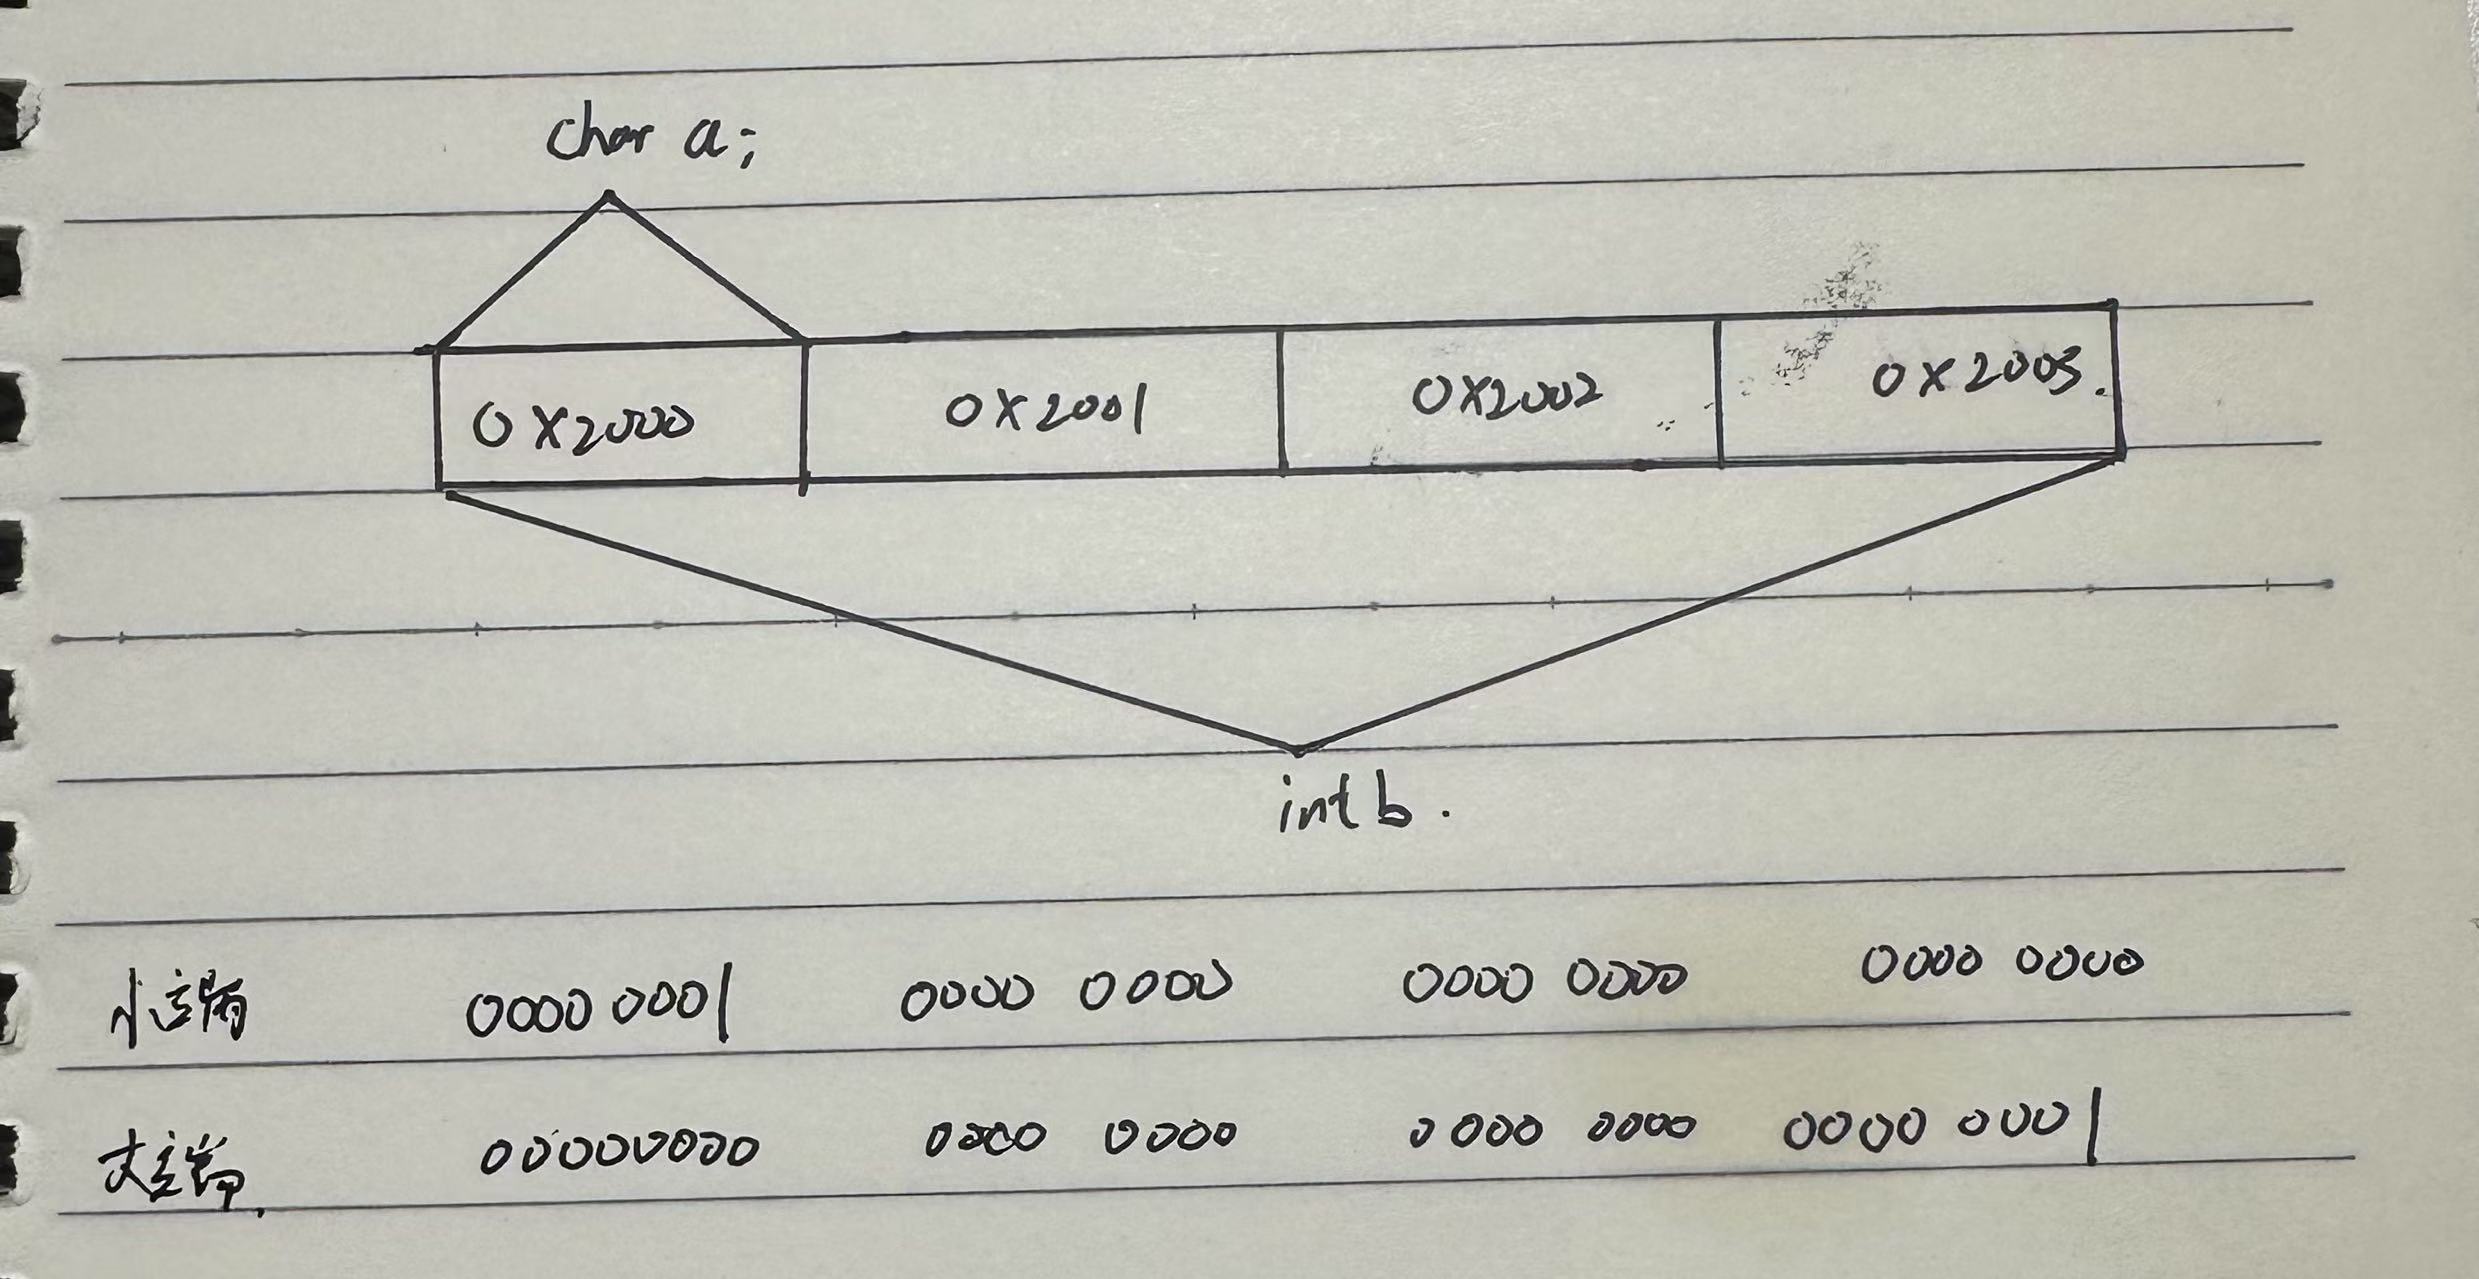 char a;
0X2000 0X2001 0X2002 0X2003.
int b.
小端 0000 0001 0000 0000 0000 0000 0000 0000
大端. 00000000 0000 0000 0000 0000 0000 0001